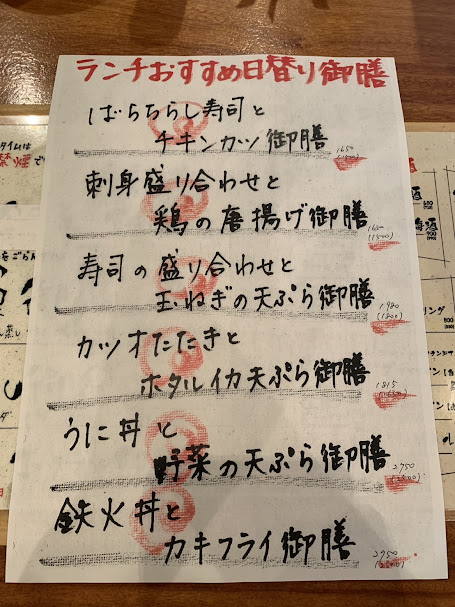 ランチおすすめ日替り御膳
ばらちらし寿司と
チキンカツ御膳
1650
(1500)
刺身盛り合わせと
鶏の唐揚げ御膳
1650
(1500)
寿司の盛り合わせと
玉ねぎの天ぷら御膳
1980
(1800)
カツオたたきと
ホタルイカ天ぷら御膳
1815
(1650)
うに丼と
野菜の天ぷら御膳
2750
(2500)
鉄火丼と
カキフライ御膳
タイムは
禁煙で